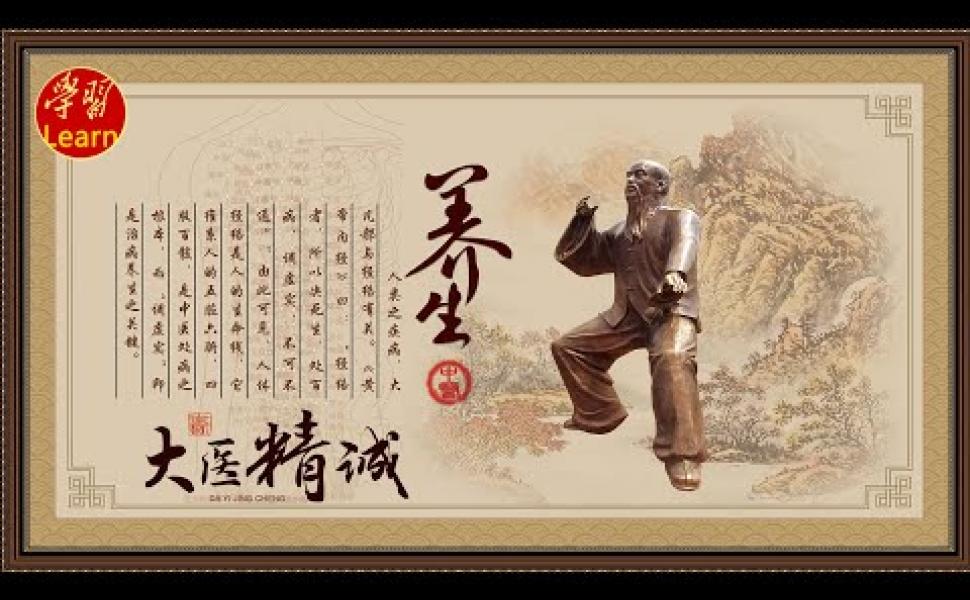 學習
Learn
养生
中医
人类之疾病,大
凡都与经络有关。《黄
帝内经》曰:“经络
者,所以决死生,处百
病,调虚实,不可不
通”。由此可见,人体
经络是人的生命线,它
维系人的五脏六腑,四
肢百骸,是中医处病之
根本,而“调虚实”即
是治病养生之关键。
大医精诚
DA YI JING CHENG